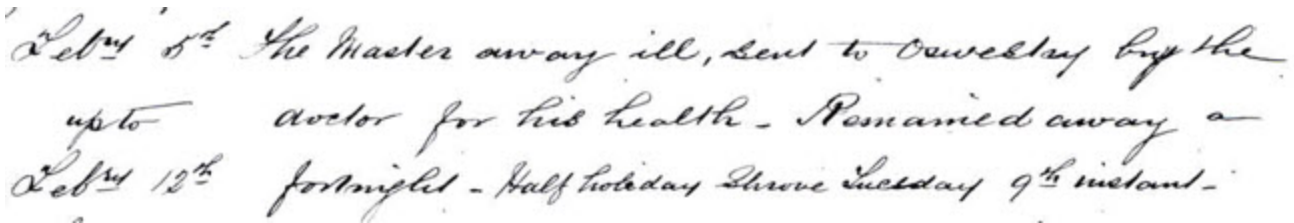 Febry 5th The Master away ill, sent to Oswestry by the
up to doctor for his health - Remained away a
Febry 12th fortnight - Half holiday Shrove Tuesday 9th instant -